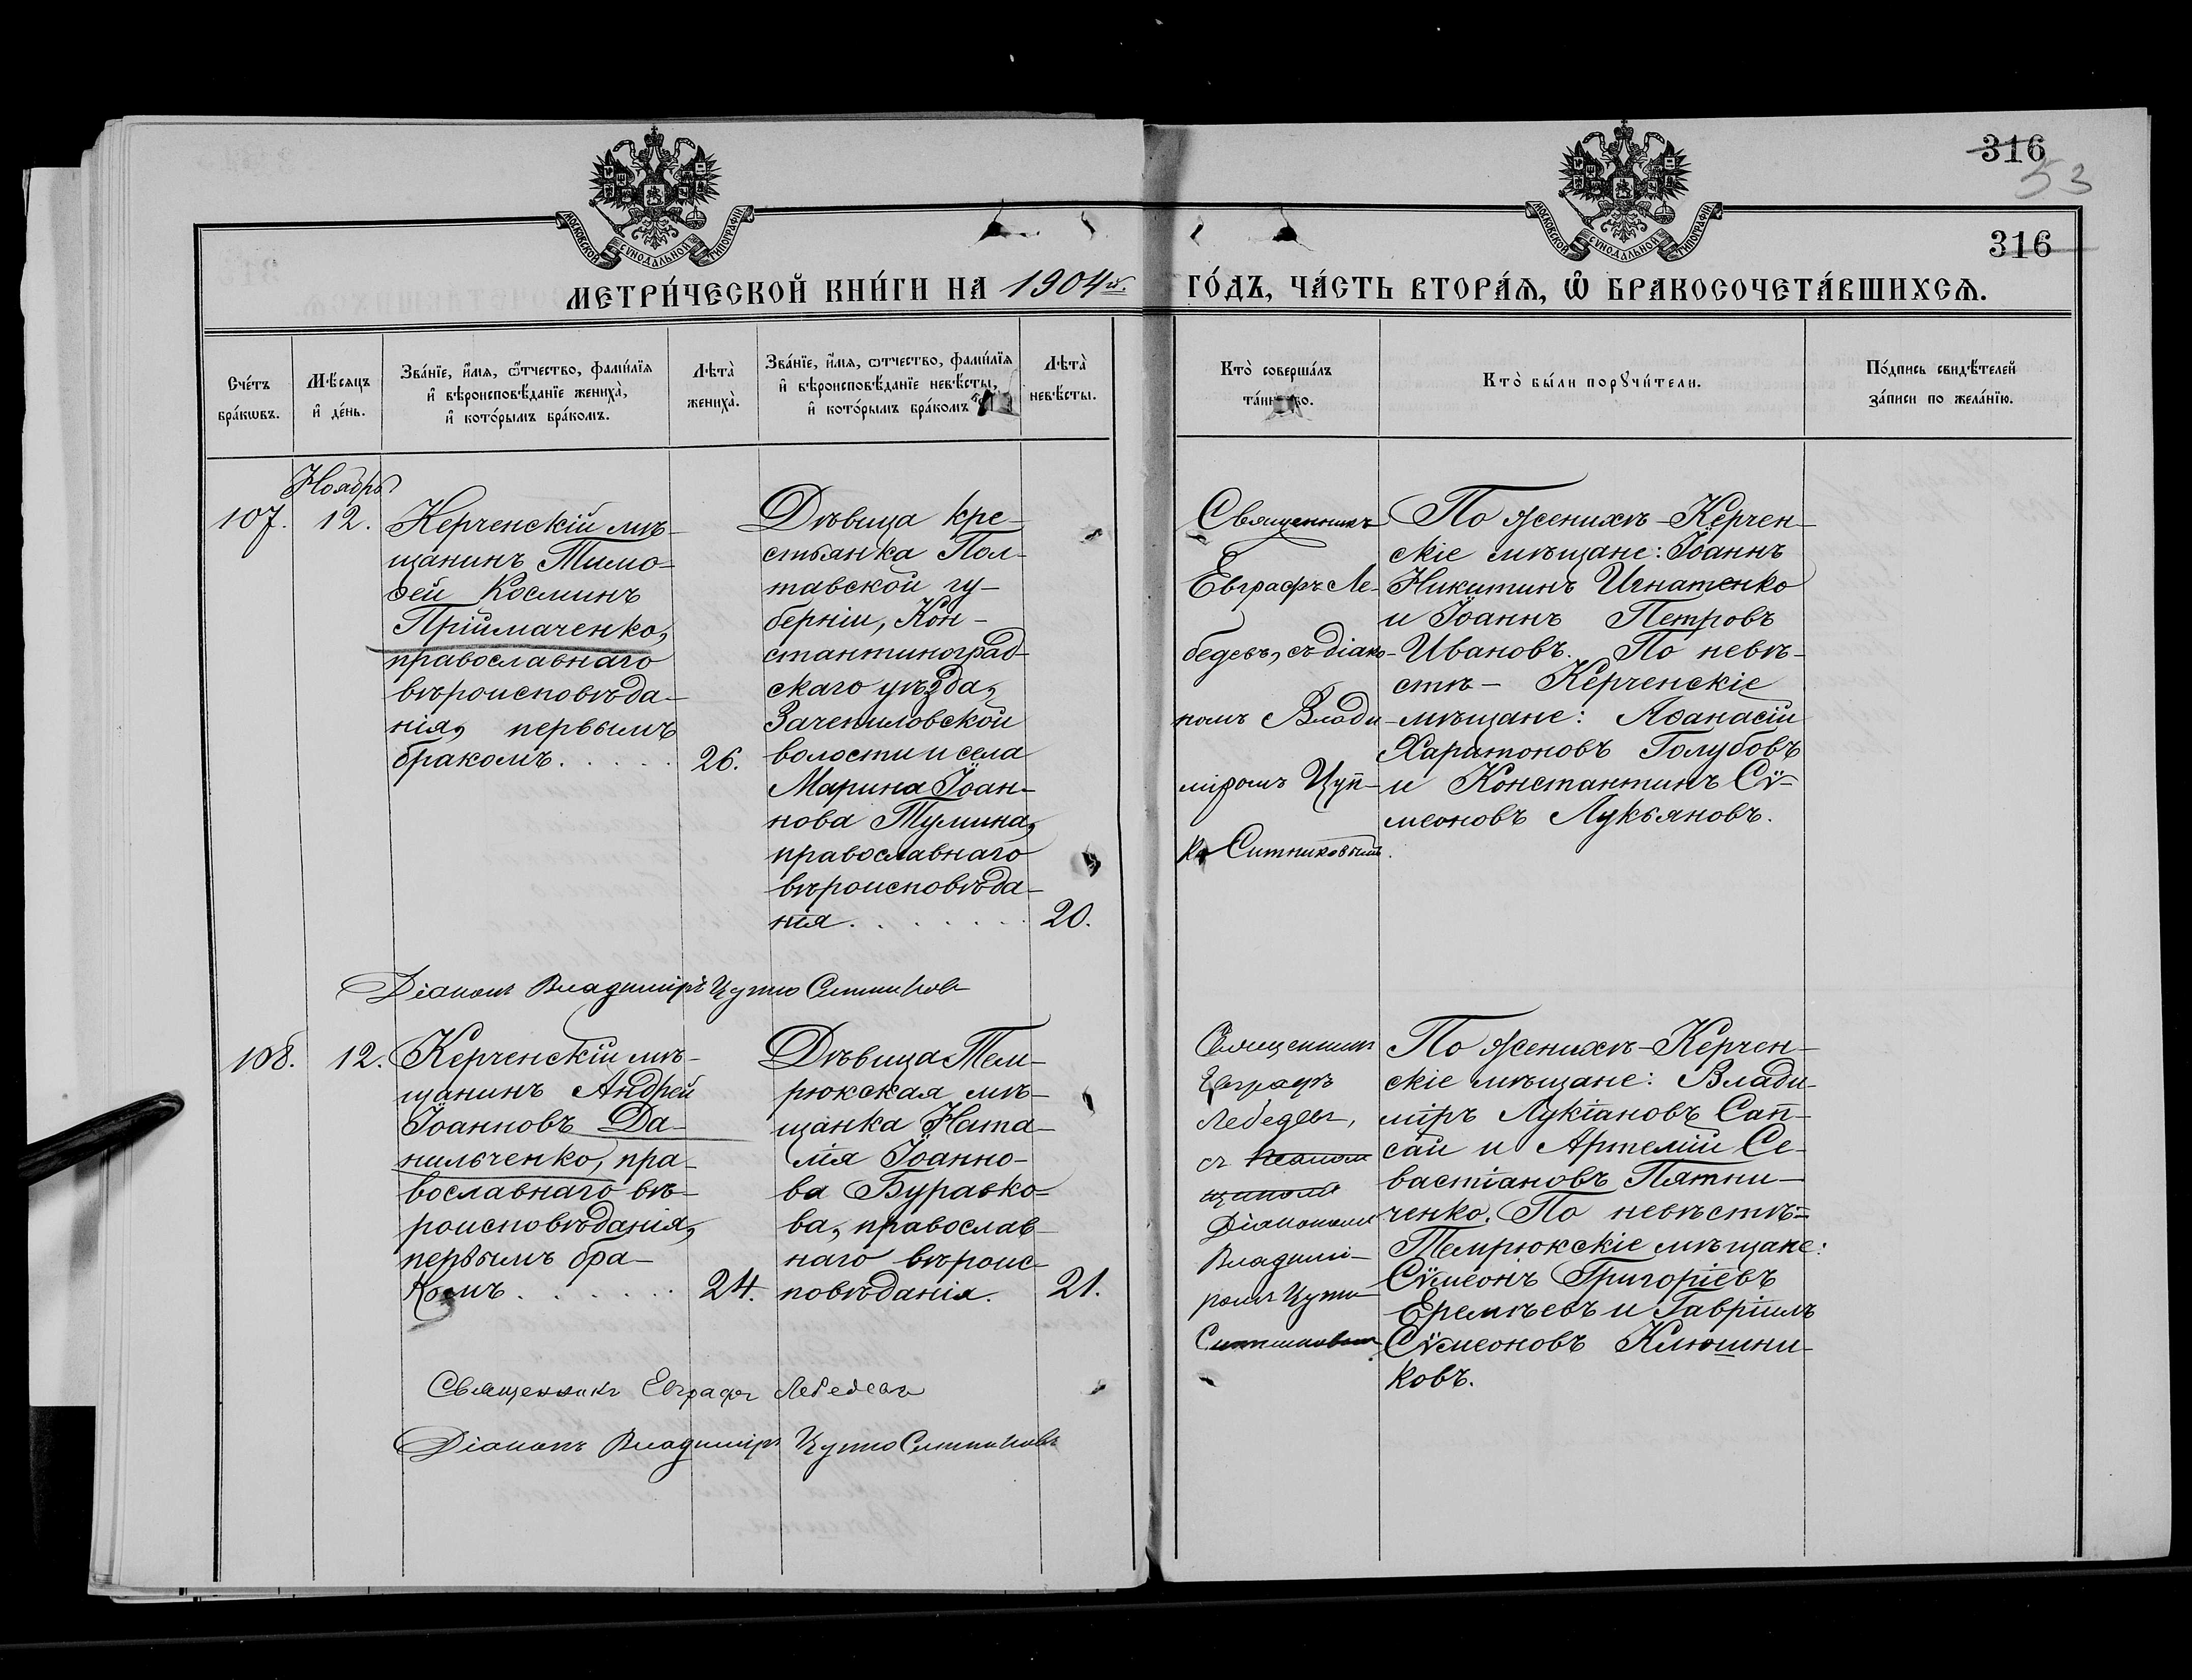 316
53
316
МОСКОВСКОЙ СѴНОДАЛЬНОЙ ТИПОГРАФІИ
МОСКОВСКОЙ СѴНОДАЛЬНОЙ ТИПОГРАФІИ
МЕТРИ́ЧЕСКОЙ КНИ́ГИ НА 1904й. ГО́ДЪ, ЧА́СТЬ ВТОРА́Ѧ, Ѽ БРАКОСОЧЕТА́ВШИХСѦ.
Сче́тъ
бра́кѡвъ.
Мѣ́сѧцъ
и҆ де́нь.
Зва́нїе, и҆́мѧ, ѻ҆́тчество, фами́лїѧ
и҆ вѣроисповѣ́данїе женихà,
и҆ кото́рымъ бра́комъ.
Лѣтà
женихà.
Зва́нїе, и҆́мѧ, ѻ҆тчество, фами́лїѧ
и҆ вѣроисповѣ́данїе невѣ́сты,
и҆ кото́рымъ бра́комъ
Лѣтà
невѣ́сты.
Ктò соверша́лъ
та́инство.
Ктò бы́ли порꙋчи́тели.
По́дпись свидѣ́телей
за́писи по жела́нїю.
Ноябрь
107.
12.
Керченскій мѣ-
щанинъ Тимо-
ѳей Косминъ
Пріймаченко,
православнаго
вѣроисповѣда-
нія, первымъ
бракомъ. . . . .
26.
Дѣвица кре-
стьянка Пол-
тавской гу-
берніи, Кон-
стантиноград-
скаго уѣзда,
Зачепиловской
волости и села
Марина Іоан-
нова Тумина,
православнаго
вѣроисповѣда-
нія. . . . . . .
20.
Священникъ
Евграфъ Ле-
бедевъ, съ діако-
номъ Влади-
міромъ Цуп-
ко Ситниковымъ.
По женихѣ - Керчен-
скіе мѣщане: Іоаннъ
Никитинъ Игнатенко
и Іоаннъ Петровъ
Ивановъ. По невѣ-
стѣ - Керченскіе
мѣщане: Аѳанасій
Харитоновъ Голубовъ
и Константинъ Сѵ-
меоновъ Лукьяновъ.
Діаконъ Владиміръ Цупко Ситниковъ
108.
12.
Керченскій мѣ-
щанинъ Андрей
Іоанновъ Да-
нильченко, пра-
вославнаго вѣ-
роисповѣданія,
первымъ бра-
комъ. . . . . . .
24.
Дѣвица Тем-
рюкская мѣ-
щанка Ната-
лія Іоанно-
ва Буравко-
ва, православ-
наго вѣроис-
повѣданія.
21.
Священникъ
Евграфъ
Лебедевъ,
съ
Діакономъ
Владимі-
ромъ Цупко
Ситниковымъ.
По женихѣ - Керчен-
скіе мѣщане: Влади-
міръ Лукіановъ Сап-
сай и Артемій Се-
вастіановъ Пятни-
ченко. По невѣстѣ -
Темрюкскіе мѣщане:
Сѵмеонъ Григоріевъ
Еремѣевъ и Гавріилъ
Сѵмеоновъ Клюшни-
ковъ.
Священникъ Евграфъ Лебедевъ
Діаконъ Владиміръ Цупко Ситниковъ